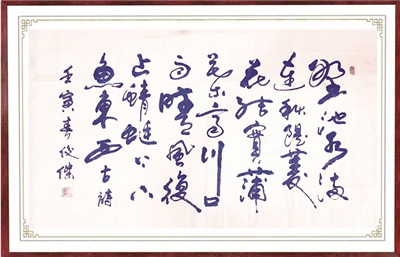 野池水滿
連秋隄菱
花結實蒲
葉齊川口
雨晴風復
止蜻蜓上下
魚東西古詩
壬寅春俊傑